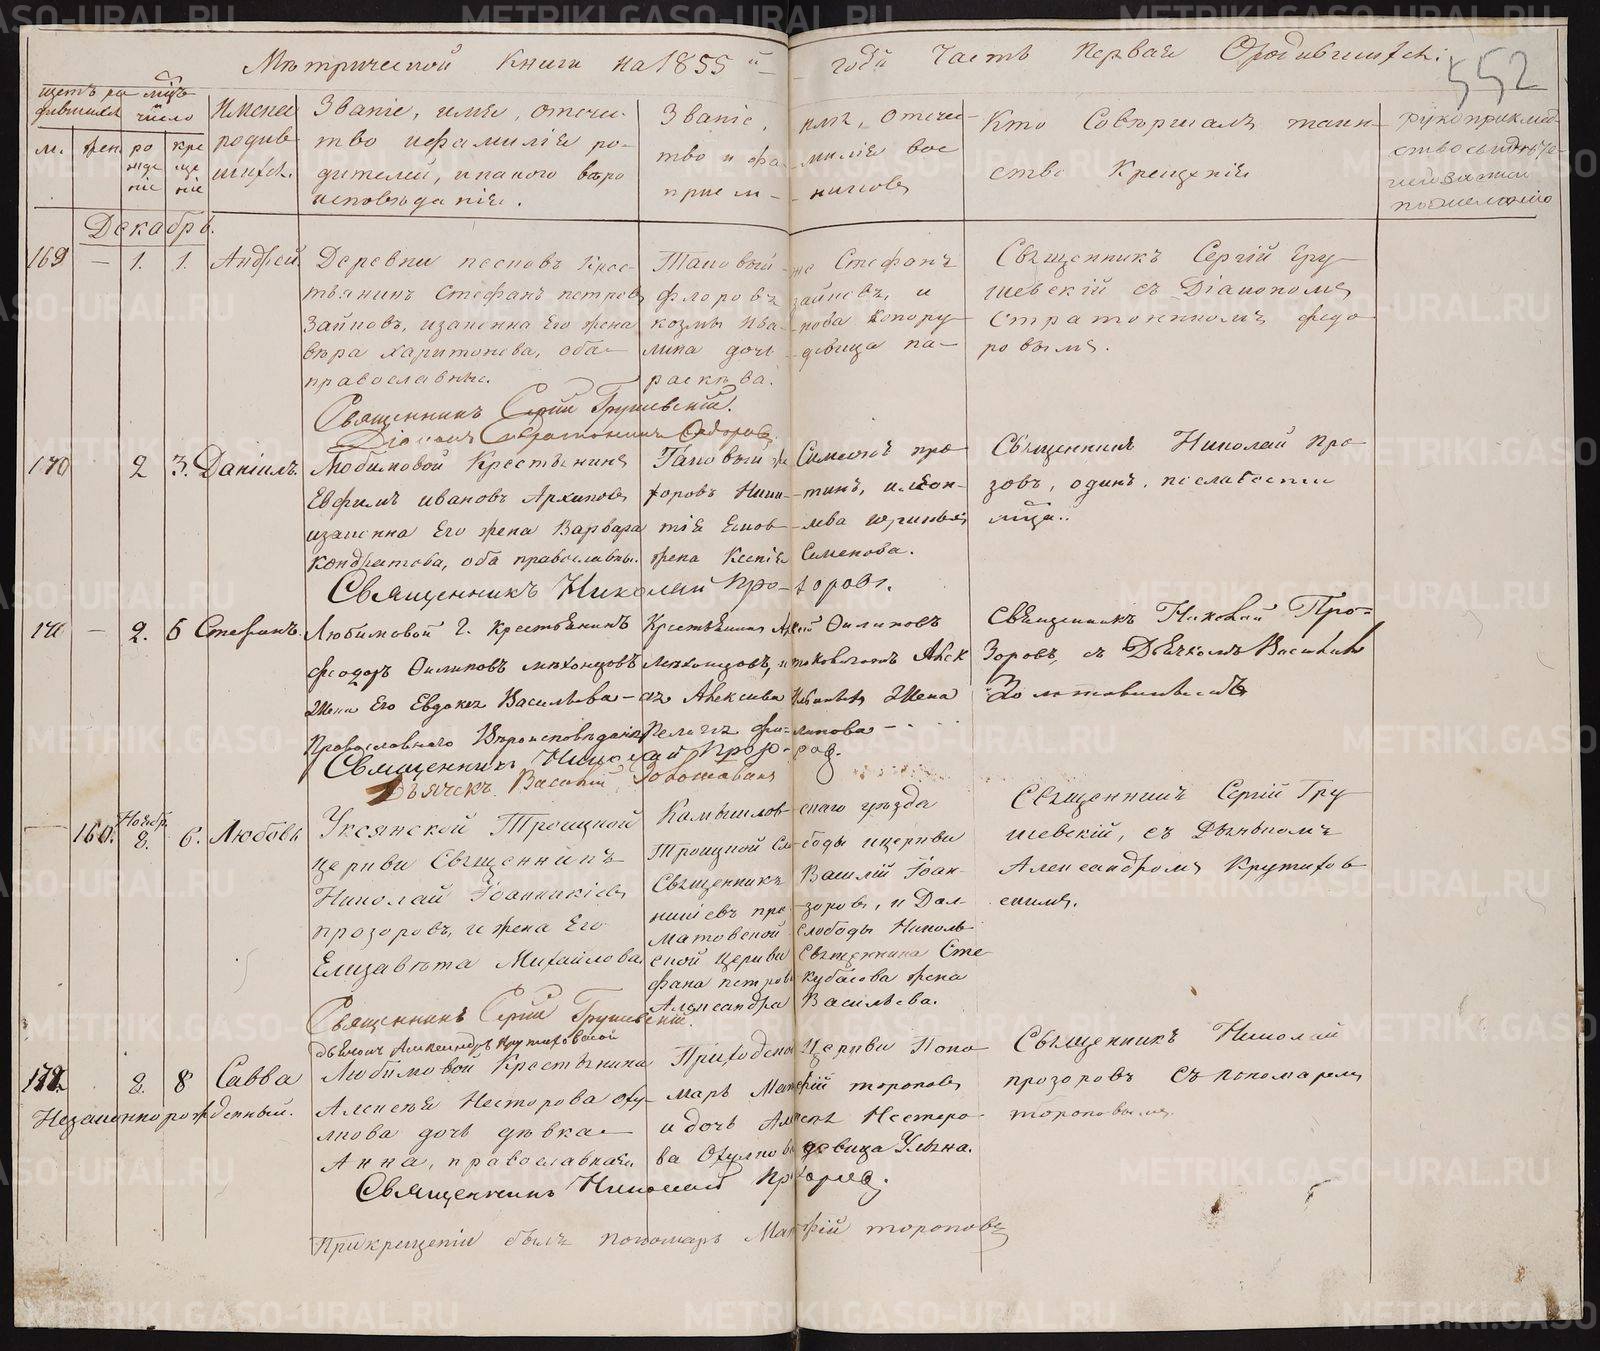 Метрической книги на 1855й годъ часть первая О родившихся:
552
щетъ родившихся
мцъ и число
м.
жен
рождение
крещение
Имена родившихся.
Званіе, имя, отечество и фамилія родителей, и какого вероисповѣданія.
Званіе, имя, отечество и фамилія восприемниковъ
Кто совѣршалъ таинство Крещенія
рукоприкладство свидѣтелей записи по желанію
Декабрь.
169 — 1. 1. Андрей.
Деревни песковъ крестьянинъ Стефанъ петровъ
Зайковъ, изаконна Его жена
вѣра Харитонова, оба
православные.
Таковый же Стефанъ
флоровъ зайковъ, и
козмы ива-нова
лина дочь девица па-
раскѣва.
Священникъ Сергій Грушевскій съ Діакономъ
Стратоникомъ федоровымъ.
Священникъ Сергій Грушевскій.
Діаконъ Стратоникъ Федоровъ
170 — 2 3. Даніилъ.
Любимовой Крестьянинъ
Евфимъ ивановъ Архиповъ
изаконна Его жена Варвара
кондратова, оба православны.
Таковый же Симеонъ
жена Ксенія Семенова.
Священникъ Николай Прозоровъ, одинъ, по слабости
Священникъ Николай Прозоровъ.
171 — 2. 6 Стефанъ.
Любимовой д. крестьянинъ
феодоръ Филиповъ
Жена Его Евдокея Васильева
Православнаго Вѣроисповѣданія
Крестьянинъ Филиповъ
Алексѣева Жена
Пелагея филипова
Священникъ Николай Прозоровъ, съ Дьячкомъ Василіемъ
Священникъ Николай Прозоровъ.
Дьячекъ Василій
160. Ноябр. 8. 6. Любовь
Уксянской Троицкой
церкви Священникъ
Николай Іоанникіевъ
прозоровъ, и жена Его
Елизавѣта Михайлова
Камышловскаго уѣзда
Троицкой слободы церкви
Священникъ Василій Іоанникіевъ прозоровъ, и Далматовской слободы Николь-
ской церкви Священника Сте-
фана петрова Кубасова жена
Александра Васильева.
Священникъ Сергій Грушевскій, съ Дьячкомъ
Александромъ Крутиховскимъ.
Священникъ Сергій Грушевскій.
дьячокъ Александръ Крутиховской
172. 8. 8 Савва
Незаконнорожденный.
Любимовой Крестьянина
Алексѣя Несторова
дочь дѣвка
Анна, православная
Приходской церкви Поно-
марь Матфій тороповъ
и дочь Алексѣя Нестеро-
ва девица Ульяна.
Священникъ Николай
прозоровъ съ пономаремъ
тороповымъ.
Священникъ Николай Прозоровъ.
При крещеніи былъ пономарь Матфій тороповъ
METRIKI.GASO-URAL.RU